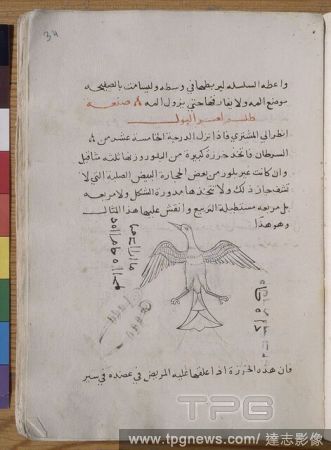 34
واعطه السلسلة ليربطها في وسطه وليسامت بالصفيحة
موضع المه ولا يفارقها حتى يزول المه صنعة
طلسم لعسر البول
انظر الى المشتري فاذا نزل الدرجة الخامسة عشر من
السرطان فاتخذ خرزة كبيرة من البلور وزنها ثلثة مثاقيل
وان كانت غير بلور من بعض الحجارة البيض الصلبة التي لا
ذلك ولا تتخذها مدورة الشكل ولا مربعة
بل مربعة مستطيلة التربيع وانقش عليها هذا المثال
وهو هذا
فان هذه الخرزة اذا علقها عليه المريض في عضده في سير
TPG
www.tpgnews.com / 達志影像